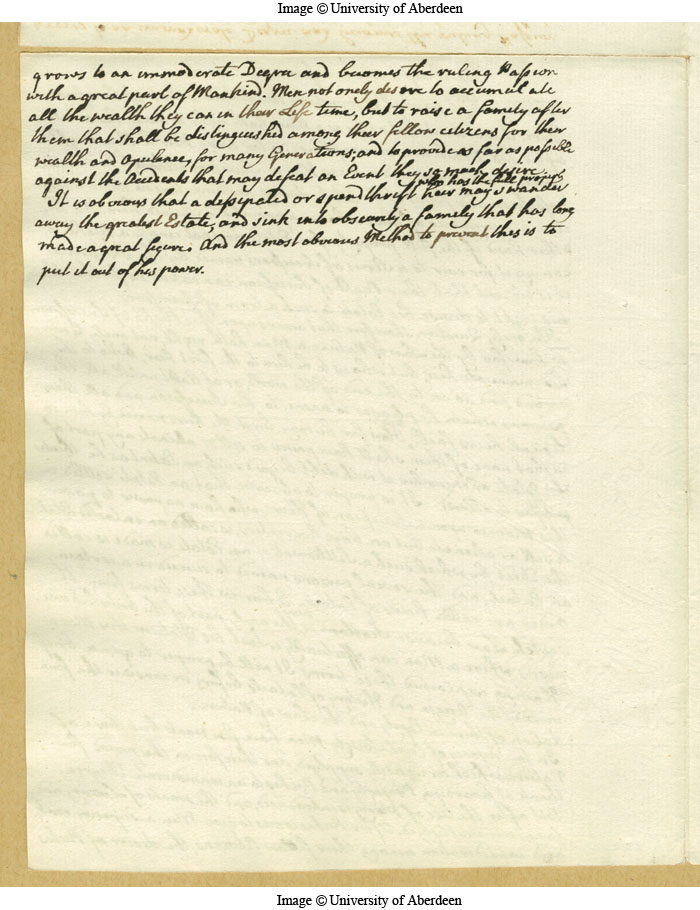 Image © University of Aberdeen
grows to an immoderate Degree and becomes the ruling Passion
with a great part of Mankind. Men not onely desire to accumulate
all the wealth they can in their Life time, but to raise a family after
them that shall be distinguished among their fellow citizens for their
wealth and Opulence, for many Generations; and to provide as far as possible
against the Accidents that may defeat an Event they so much desire.
who has the full property
It is obvious that a dissipated or spendthrift heir may swander
away the greatest Estate, and sink into obscurity a family that has long
made a great figure. And the most obvious Method to prevent this is to
put it out of his power.
Image © University of Aberdeen